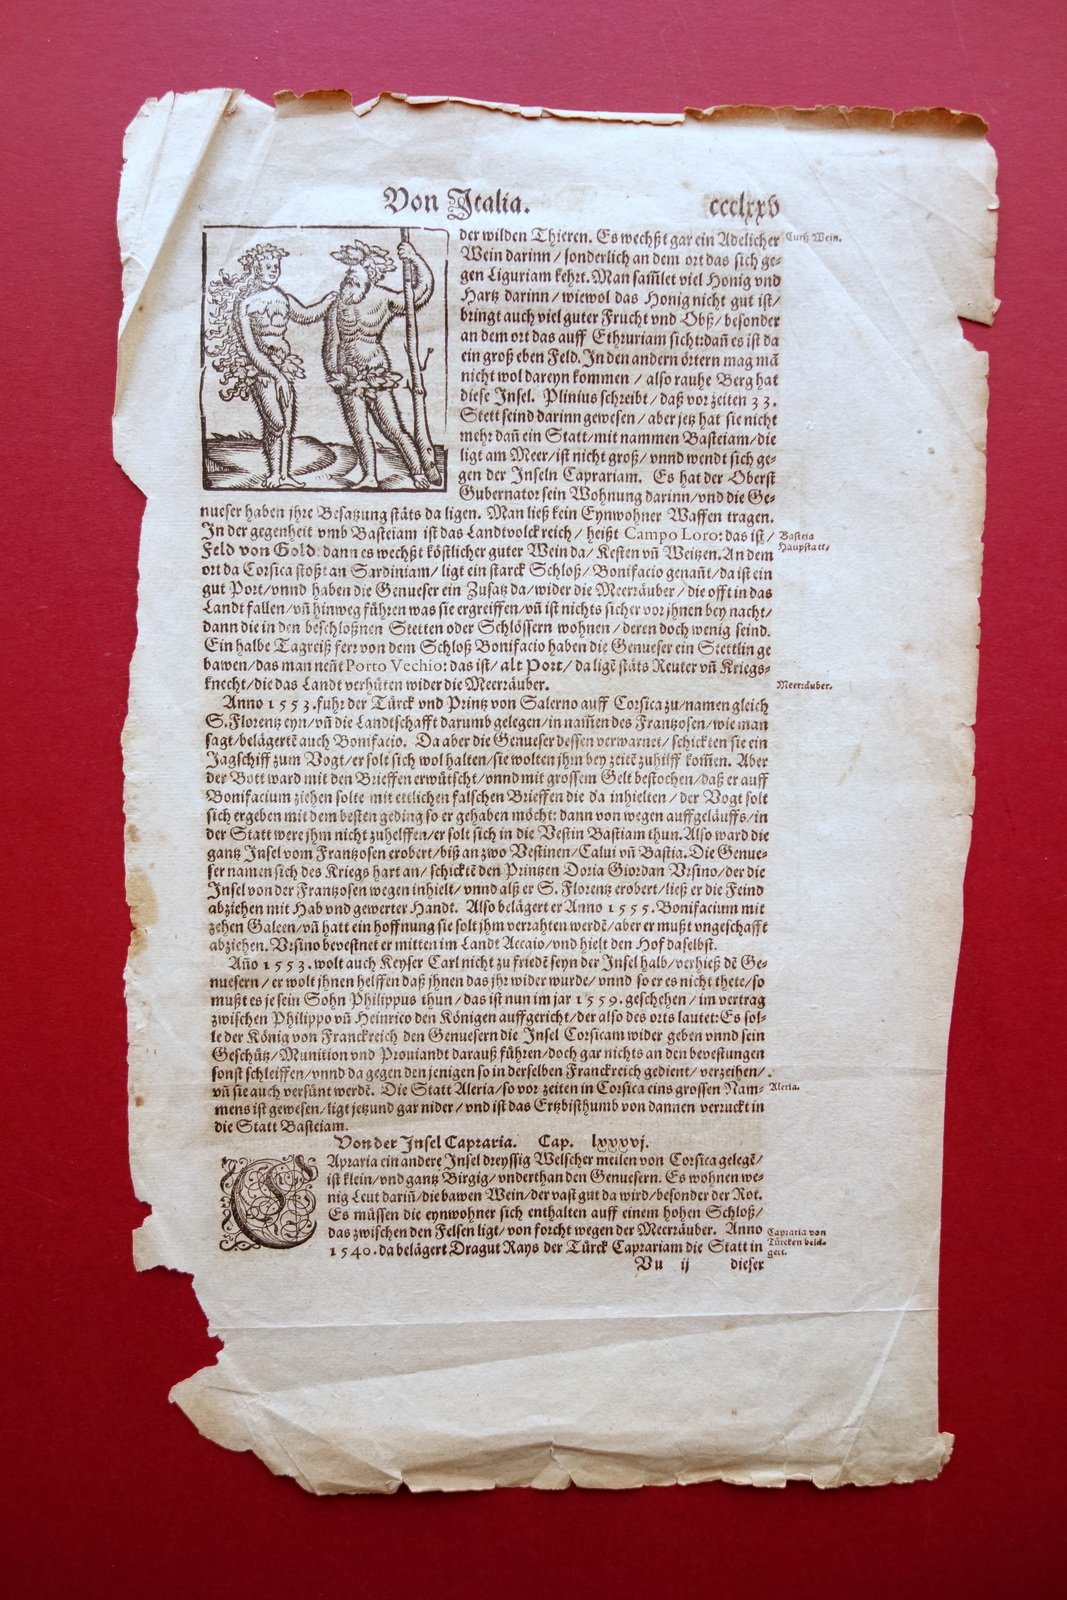 Von Italia.
ccclxxv
der wilden Thieren. Es wechßt gar ein Adelicher
Curß Wein.
Wein darinn / sonderlich an dem ort das sich ge⸗
gen Liguriam kehrt. Man sam̃let viel Honig vnd
Hartz darinn / wiewol das Honig nicht gut ist /
bringt auch viel guter Frucht vnd Obß / besonder
an dem ort das auff Ethruriam sicht: dañ es ist da
ein groß eben Feld. In den andern örtern mag mã
nicht wol dareyn kommen / also rauhe Berg hat
diese Insel. Plinius schreibt / daß vor zeiten 33.
Stett seind darinn gewesen / aber jetz hat sie nicht
mehr dañ ein Statt / mit nammen Basteiam / die
ligt am Meer / ist nicht groß / vnnd wendt sich ge⸗
gen der Inseln Caprariam. Es hat der Oberst
Gubernator sein Wohnung darinn / vnd die Ge⸗
nueser haben jhre Besatzung stäts da ligen. Man ließ kein Eynwohner Waffen tragen.
In der gegenheit vmb Basteiam ist das Landtvolck reich / heißt Campo Loro: das ist /
Basteia
Hauptstatt.
Feld von Gold: dann es wechßt köstlicher guter Wein da / Kesten vñ Weitzen. An dem
ort da Corsica stoßt an Sardiniam / ligt ein starck Schloß / Bonifacio genañt / da ist ein
gut Port / vnnd haben die Genueser ein Zusatz da / wider die Meerräuber / die offt in das
Landt fallen / vñ hinweg führen was sie ergreiffen / vñ ist nichts sicher vor jhnen bey nacht /
dann die in den beschloßnen Stetten oder Schlössern wohnen / deren doch wenig seind.
Ein halbe Tagreiß ferr von dem Schloß Bonifacio haben die Genueser ein Stettlin ge
bawen / das man neñt Porto Vechio: das ist / alt Port / da ligẽ stäts Reuter vñ Kriegs⸗
knecht / die das Landt verhüten wider die Meerräuber.
Meerräuber.
Anno 1553. fuhr der Türck vnd Printz von Salerno auff Corsica zu / namen gleich
S. Florentz eyn / vñ die Landtschafft darumb gelegen / in nam̃en des Frantzosen / wie man
sagt / belägertẽ auch Bonifacio. Da aber die Genueser dessen verwarnet / schickten sie ein
Jagschiff zum Vogt / er solt sich wol halten / sie wolten jhm bey zeitẽ zuhilff kom̃en. Aber
der Bott ward mit den Brieffen erwütscht / vnnd mit grossem Gelt bestochen / daß er auff
Bonifacium ziehen solte mit ettlichen falschen Brieffen die da inhielten / der Vogt solt
sich ergeben mit dem besten geding so er gehaben möcht: dann von wegen auffgeläuffs / in
der Statt were jhm nicht zuhelffen / er solt sich in die Vestin Bastiam thun. Also ward die
gantz Insel vom Frantzosen erobert / biß an zwo Vestinen / Calui vñ Bastia. Die Genue⸗
ser namen sich des Kriegs hart an / schicktẽ den Printzen Doria Giordan Vrsino / der die
Insel von der Frantzosen wegen inhielt / vnnd alß er S. Florentz erobert / ließ er die Feind
abziehen mit Hab vnd gewerter Handt. Also belägert er Anno 1555. Bonifacium mit
zehen Galeen / vñ hatt ein hoffnung sie solt jhm verrahten werdẽ / aber er mußt vngeschafft
abziehen. Vrsino bevestnet er mitten im Landt Accaio / vnd hielt den Hof daselbst.
Año 1553. wolt auch Keyser Carl nicht zu friedẽ seyn der Insel halb / verhieß dẽ Ge⸗
nuesern / er wolt jhnen helffen daß jhnen das jhr wider wurde / vnnd so er es nicht thete / so
mußt es je sein Sohn Philippus thun / das ist nun im jar 1559. geschehen / im vertrag
zwischen Philippo vñ Heinrico den Königen auffgericht / der also des orts lautet: Es sol⸗
le der König von Franckreich den Genuesern die Insel Corsicam wider geben vnnd sein
Geschütz / Munition vnd Prouiandt darauß führen / doch gar nichts an den bevestungen
sonst schleiffen / vnnd da gegen den jenigen so in derselben Franckreich gedient / verzeihen /
vñ sie auch versünt werdẽ. Die Statt Aleria / so vor zeiten in Corsica eins grossen Nam⸗
Aleria.
mens ist gewesen / ligt jetzund gar nider / vnd ist das Ertzbisthumb von dannen verruckt in
die Statt Basteiam.
Von der Insel Capraria. Cap. lxxxvj.
Capraria ein andere Insel dreyssig Welscher meilen von Corsica gelegẽ /
ist klein / vnd gantz Birgig / vnderthan den Genuesern. Es wohnen we⸗
nig Leut dariñ / die bawen Wein / der vast gut da wird / besonder der Rot.
Es müssen die eynwohner sich enthalten auff einem hohen Schloß /
das zwischen den Felsen ligt / von forcht wegen der Meerräuber. Anno
Capraria von
Türcken belä⸗
gert.
1540. da belägert Dragut Rays der Türck Caprariam die Statt in
Vu ij
dieser